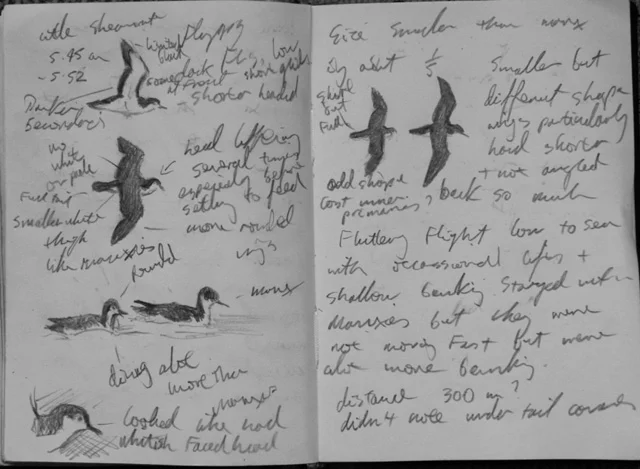 little Shearwater
5.45 am
- 5.52
flapping
low
short glides
shorter headed
Darker
Secondaries
no
white
on
Full
smaller white
thigh
like Manxies
head lifting
several times
especially before
settling to feed
more rounded
wings
round
manx
diving alot
more than
manxes
looked like had
whitish Faced head
Size smaller than manx
by about 1/5
Smaller but
different shape
wings particularly
hand shorter
+ not angled
back so much
odd shape
lost inner
primaries?
Fluttery Flight low to sea
with occassional lifts +
shallow banking stayed with
Manxes but they were
not moving Fast but were
alot more banking.
distance 300 m ?
didn't note under tail coverts